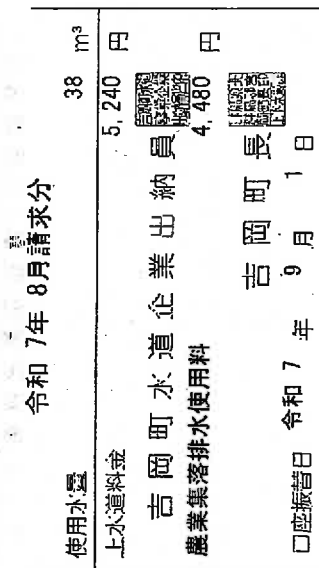 令和 7年 8月請求分
使用水量 38 m³
上水道料金 5,240 円
吉岡町水道企業出納員
農業集落排水使用料 4,480 円
吉岡町長
口座振替日 令和 7 年 9 月 1 日